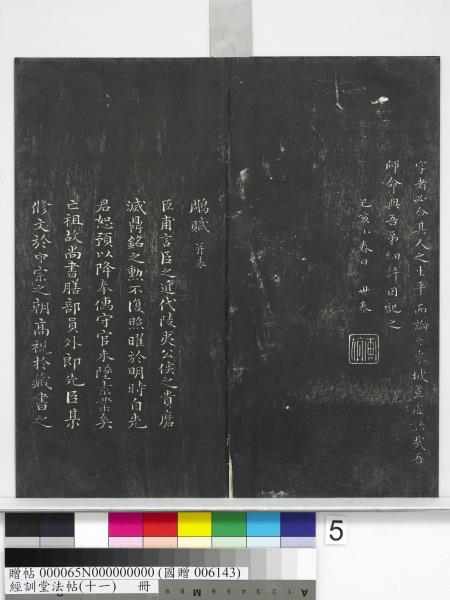 字者必合其人之生平而論之東坡豈虛語哉吾
師命與吾弟細評因記之
己亥小春日 世泰
鵰賦 并表
臣甫言臣之近代陵夷公侯之貴磨
滅鼎銘之勳不復照曜於明時自先
君恕預以降奉儒守官未墜素業矣
亡祖故尚書膳部員外郎先臣某
修文於中宗之朝高視於藏書之
5
贈帖 000065N000000000 (國贈 006143)
經訓堂法帖(十一) 冊